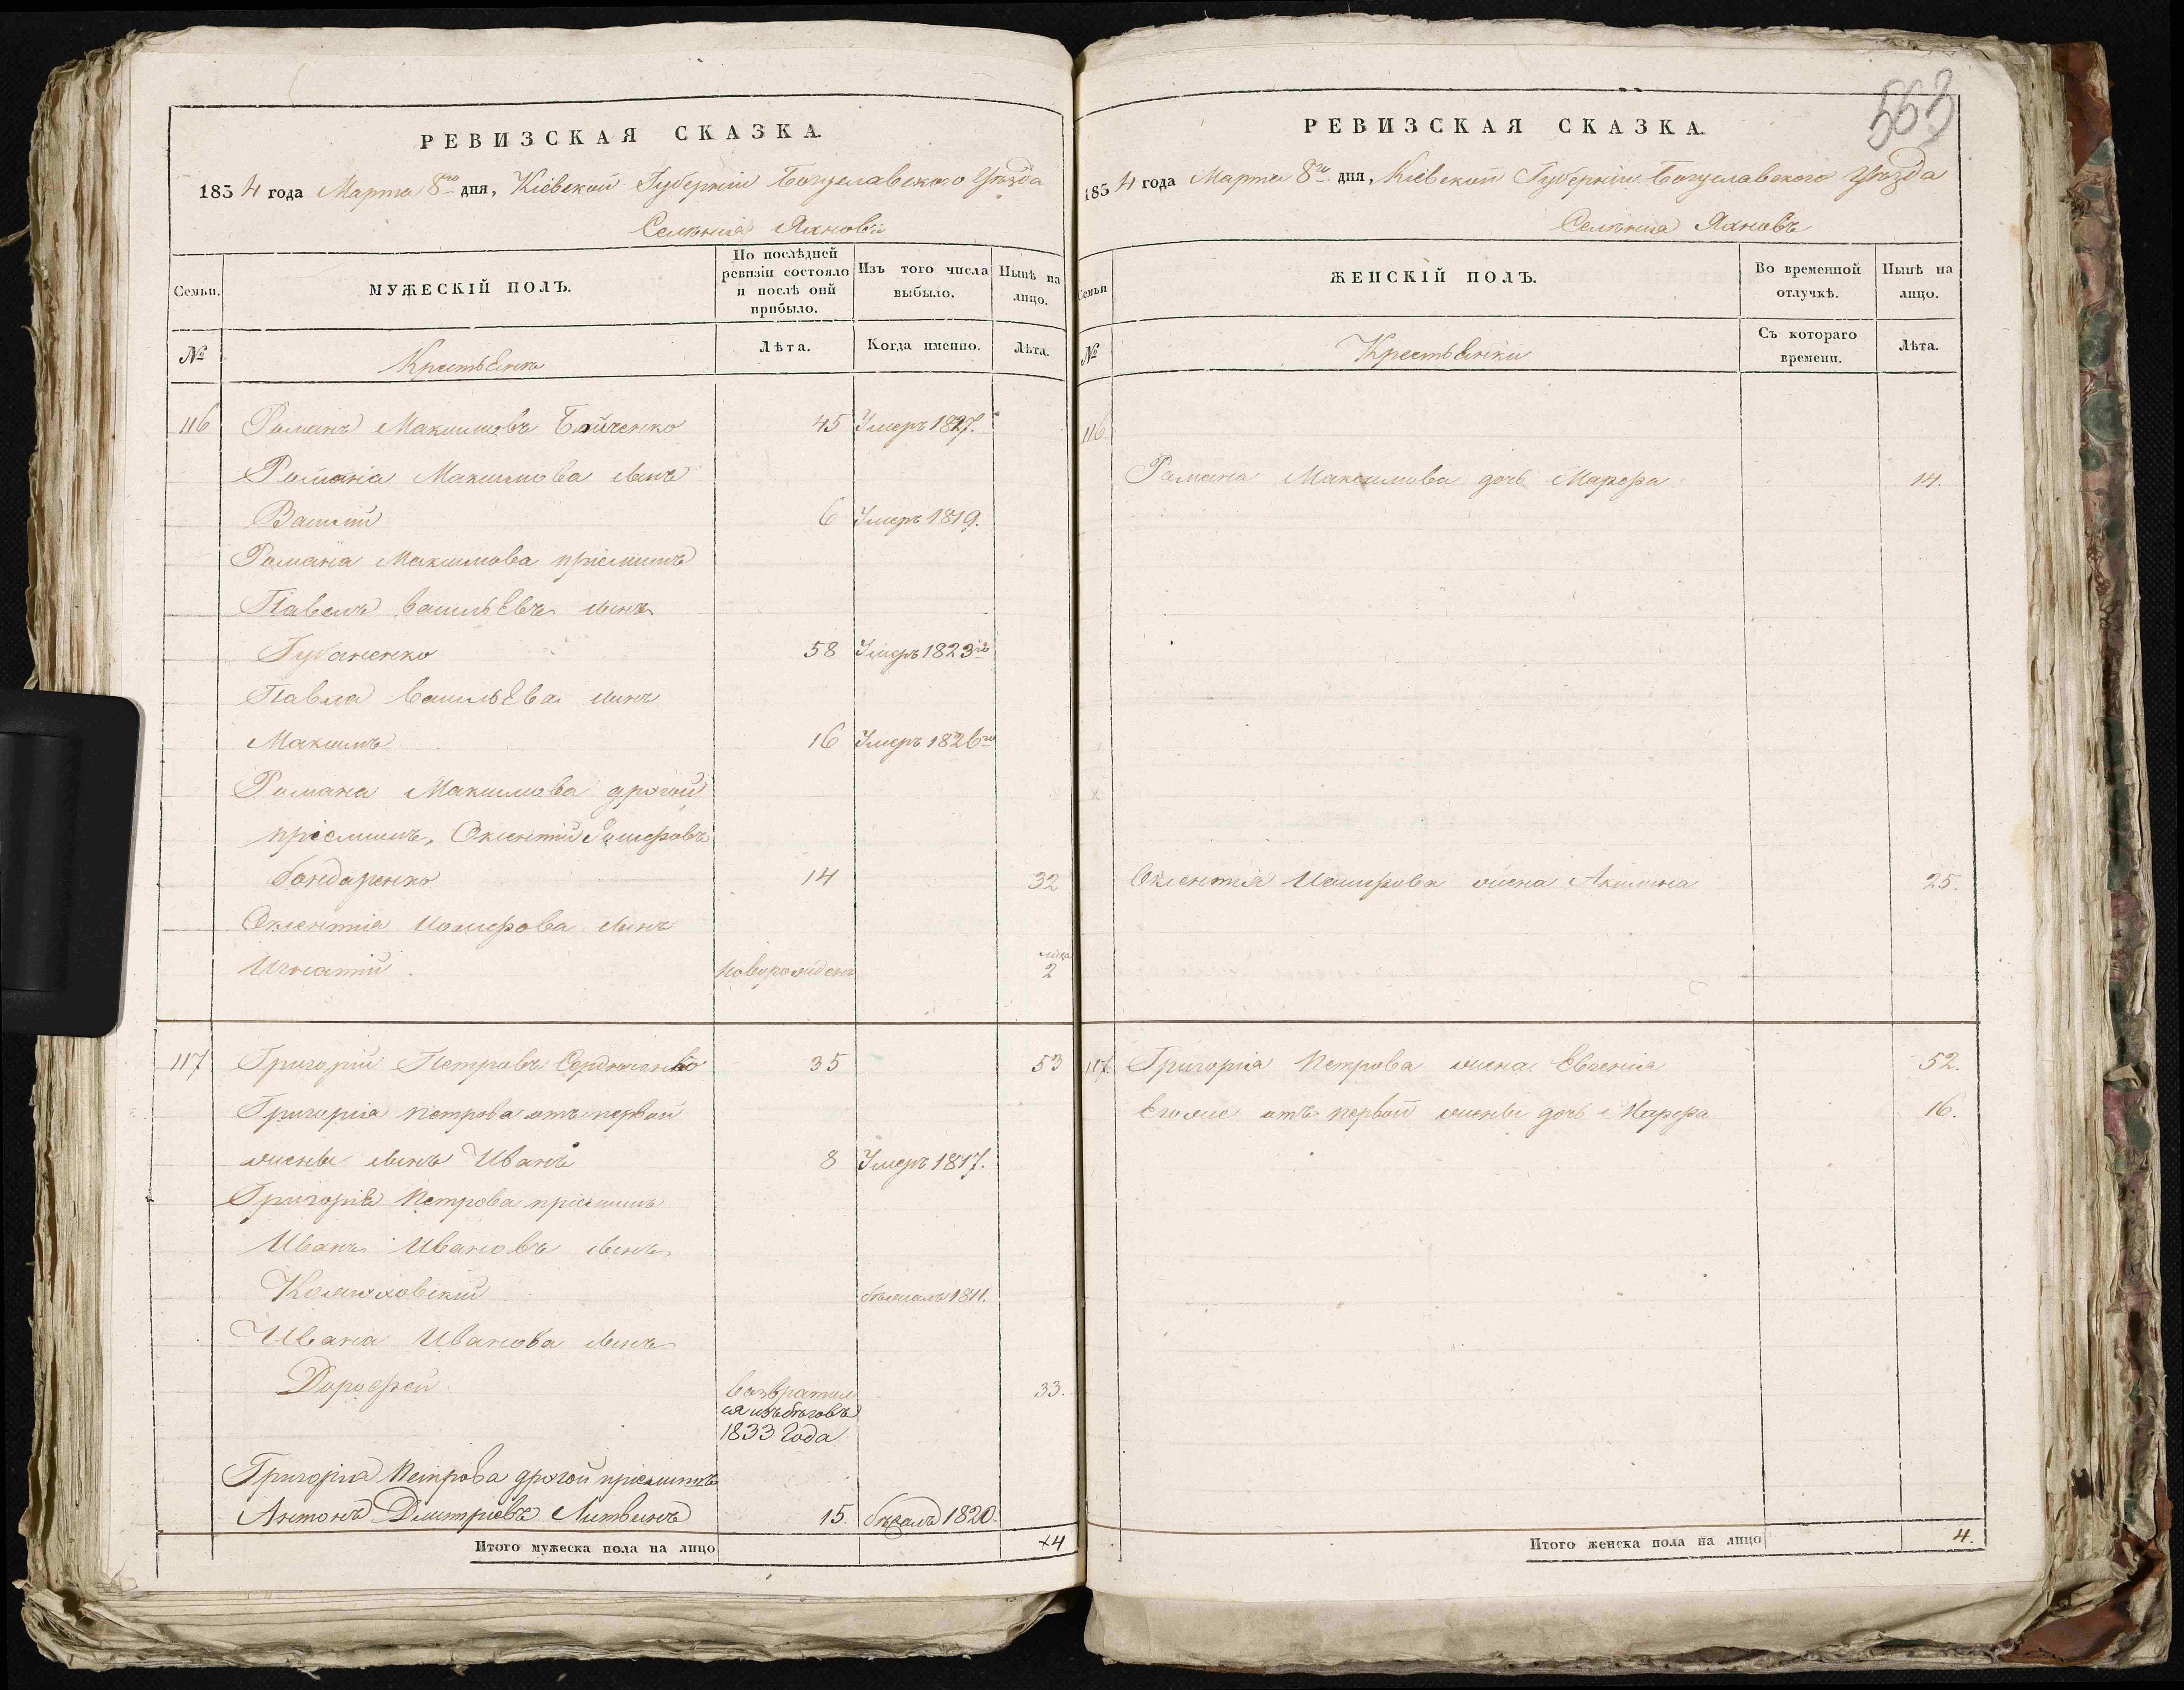 РЕВИЗСКАЯ СКАЗКА.
1834 года Марта 8го дня, Кіевской Губерніи Богуславского Уѣзда
Селенія Яхновъ
Семьи.
МУЖЕСКІЙ ПОЛЪ.
По послѣдней ревизіи состояло и послѣ оной прибыло.
Изъ того числа выбыло.
Нынѣ на лицо.
№
Крестьяне
Лѣта.
Когда именно.
Лѣта.
116 Романъ Максимовъ Бойченко 45 Умеръ 1827.
Романа Максимова сынъ
Василій 6 Умеръ 1819.
Романа Максимова пріемышъ
Павелъ Васильевъ сынъ
Губаненко 58 Умеръ 1823го
Павла Васильева сынъ
Максимъ 16 Умеръ 1826го
Романа Максимова другой
пріемышъ, Оксентій
Бондаренко 14 32
Оксентія сынъ
Игнатій новорожденъ 2
117 Григорій Петровъ Сердюченко 35 53
Григорія Петрова отъ первой
жены сынъ Иванъ 8 Умеръ 1817.
Григорія Петрова пріемышъ
Иванъ Ивановъ сынъ
бѣжалъ 1811.
Ивана Иванова сынъ
Дорофей возвратил 33.
ся изъ бѣговъ
1833 года
Григорія Петрова другой пріемышъ
Антонъ Дмитріевъ Литвинъ 15. бѣжалъ 1820.
Итого мужеска пола на лицо ×4
563
РЕВИЗСКАЯ СКАЗКА.
1834 года Марта 8го дня, Кіевской Губерніи Богуславского Уѣзда
Селенія Яхновъ
Семьи
ЖЕНСКІЙ ПОЛЪ.
Во временной отлучкѣ.
Нынѣ на лицо.
№
Крестьянки
Съ котораго времени.
Лѣта.
116
Романа Максимова дочь Марфа 14.
Оксентія жена Акилина 25.
117. Григорія Петрова жена Евгенія 52.
Егоже отъ первой жены дочь Марфа 16.
Итого женска пола на лицо 4.